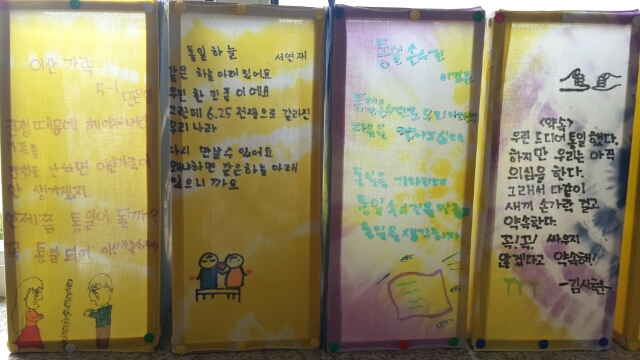 이산 가족
5-1
전쟁 때문에 헤어져버린
가족들
전쟁을 안하면 이산가족이
안 생기겠지.
언제쯤 통일이 될까?
꼭 통일 되어
통일 하늘
서연재
같은 하늘 아래 있어요
우린 한 민족 이에요
그런데 6.25 전쟁으로 갈라진
우리 나라
다시 만날 수 있어요
왜냐하면 같은 하늘 아래
있으니 까요
통일 손수건
통일을
통일을 기다리며
통일 손수건을 만들고
통일을 생각하자
<약속>
우린 드디어 통일 했다.
하지만 우리는 아직
의심을 한다.
그래서 다같이
새끼 손가락 걸고
약속한다.
꼭! 꼭! 싸우지
않겠다고 약속해!
-김사현-